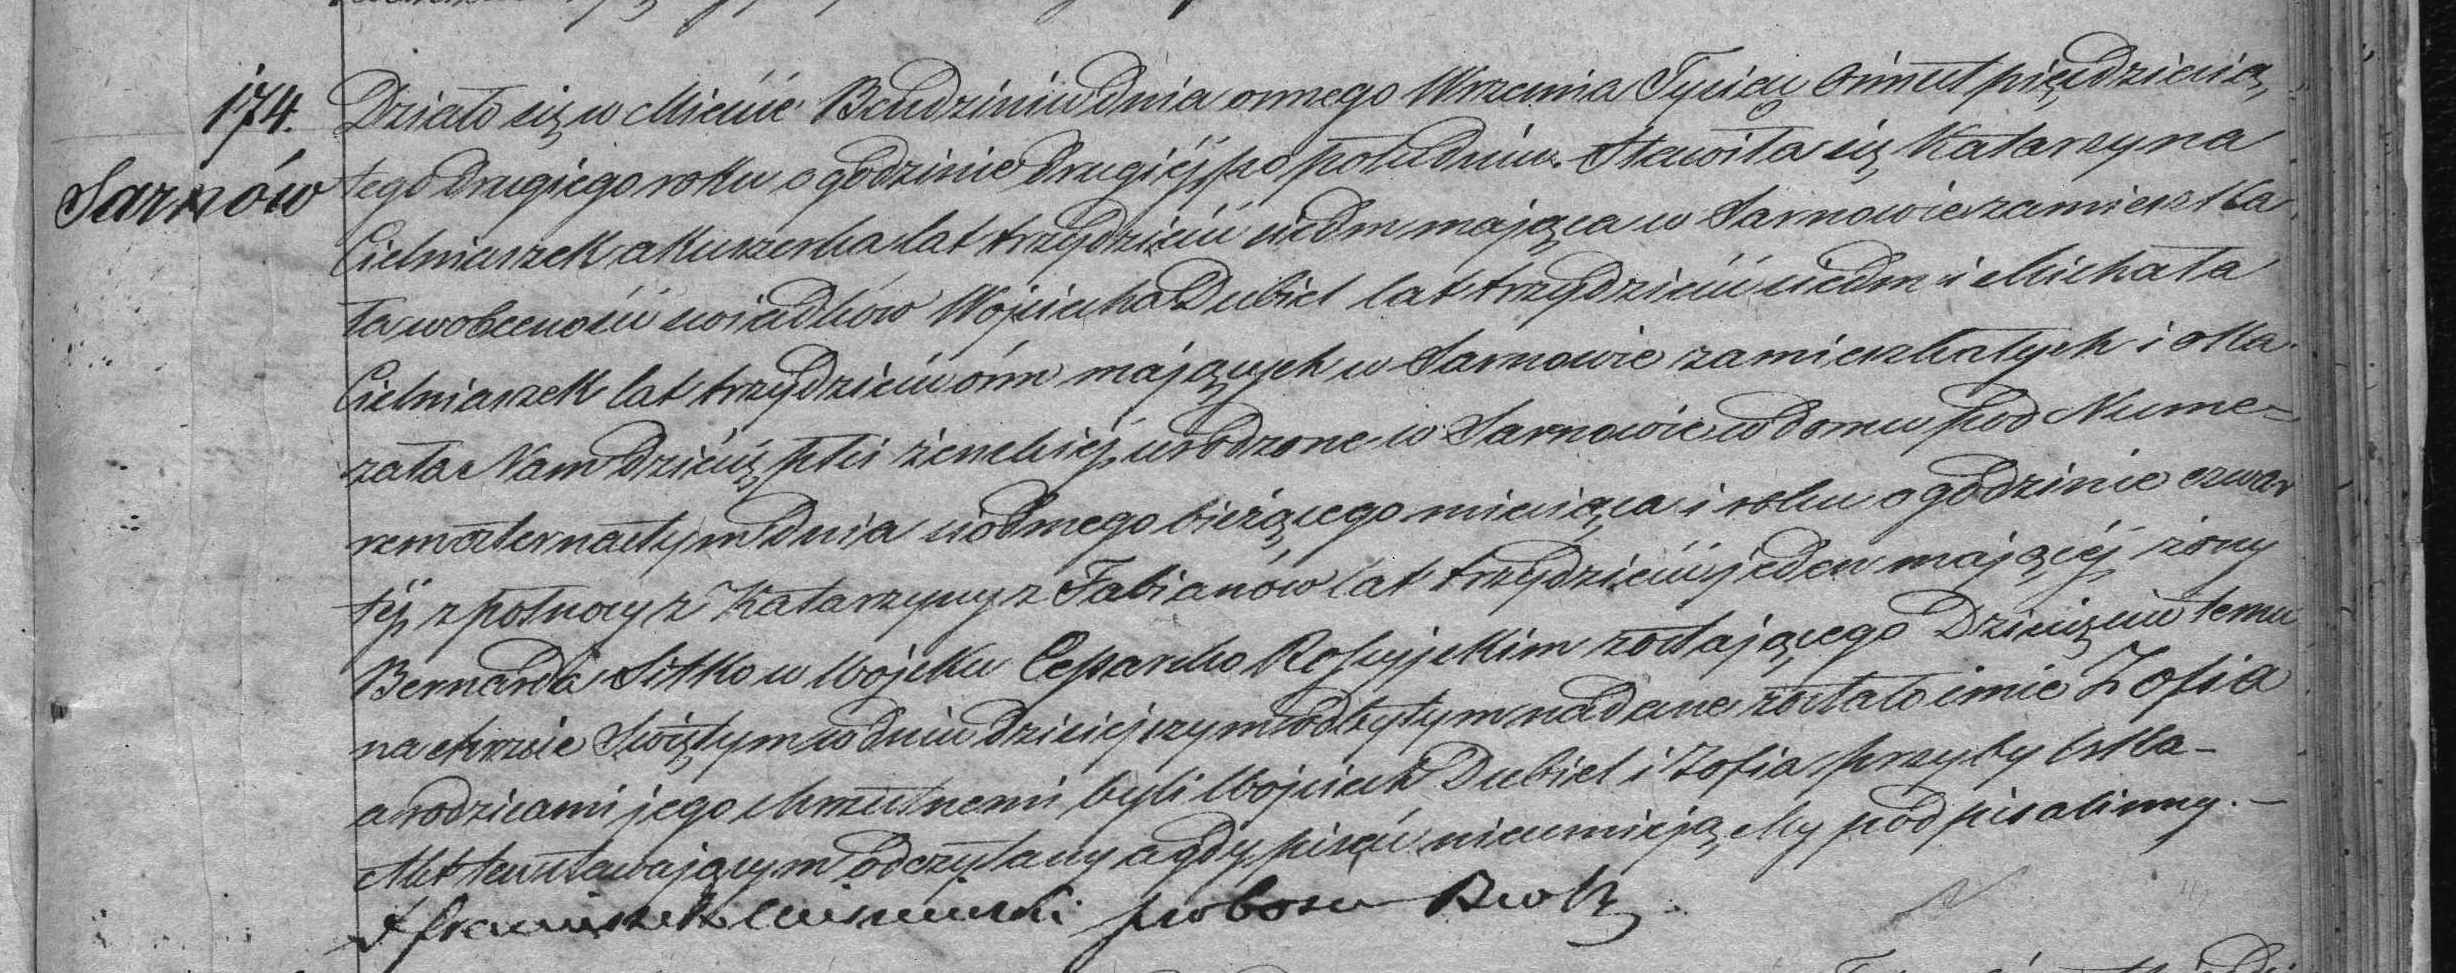 174.
Sarnów
Działo się w Mieście Bendzinie dnia ósmego Września Tysiąc Ośmset pięćdziesią
tego drugiego roku o godzinie drugiéj po południu. Stawiła się Katarzyna
Cielniaszek akuszerka lat trzydzieści siedm mająca w Sarnowie zamieszka
ła w obecności świadków Wojciecha Dubiel lat trzydzieści siedm i Michała
Cielniaszek lat trzydzieści ośm mających w Sarnowie zamieszkałych i oka
zała Nam dziécię płci żeńskiéj urodzone w Sarnowie w domu pod Nume=
rem czternastym dnia siódmego bieżącego miesiąca i roku o godzinie czwar
téj z północy z Katarzyny z Fabianów lat trzydzieści jeden mającéj żony
Bernarda Sitko w Wojsku Cesarsko Rossyjskim zostającego Dziecięciu temu
na chrzcie Świętym w dniu dzisiejszym odbytym nadane zostało imie Zofia
a rodzicami jego chrzestnemi byli Wojciech Dubiel i Zofia Przybylska –
Akt ten stawającym odczytany a gdy pisać nieumieją My podpisaliśmy. –
X Franciszek proboszcz